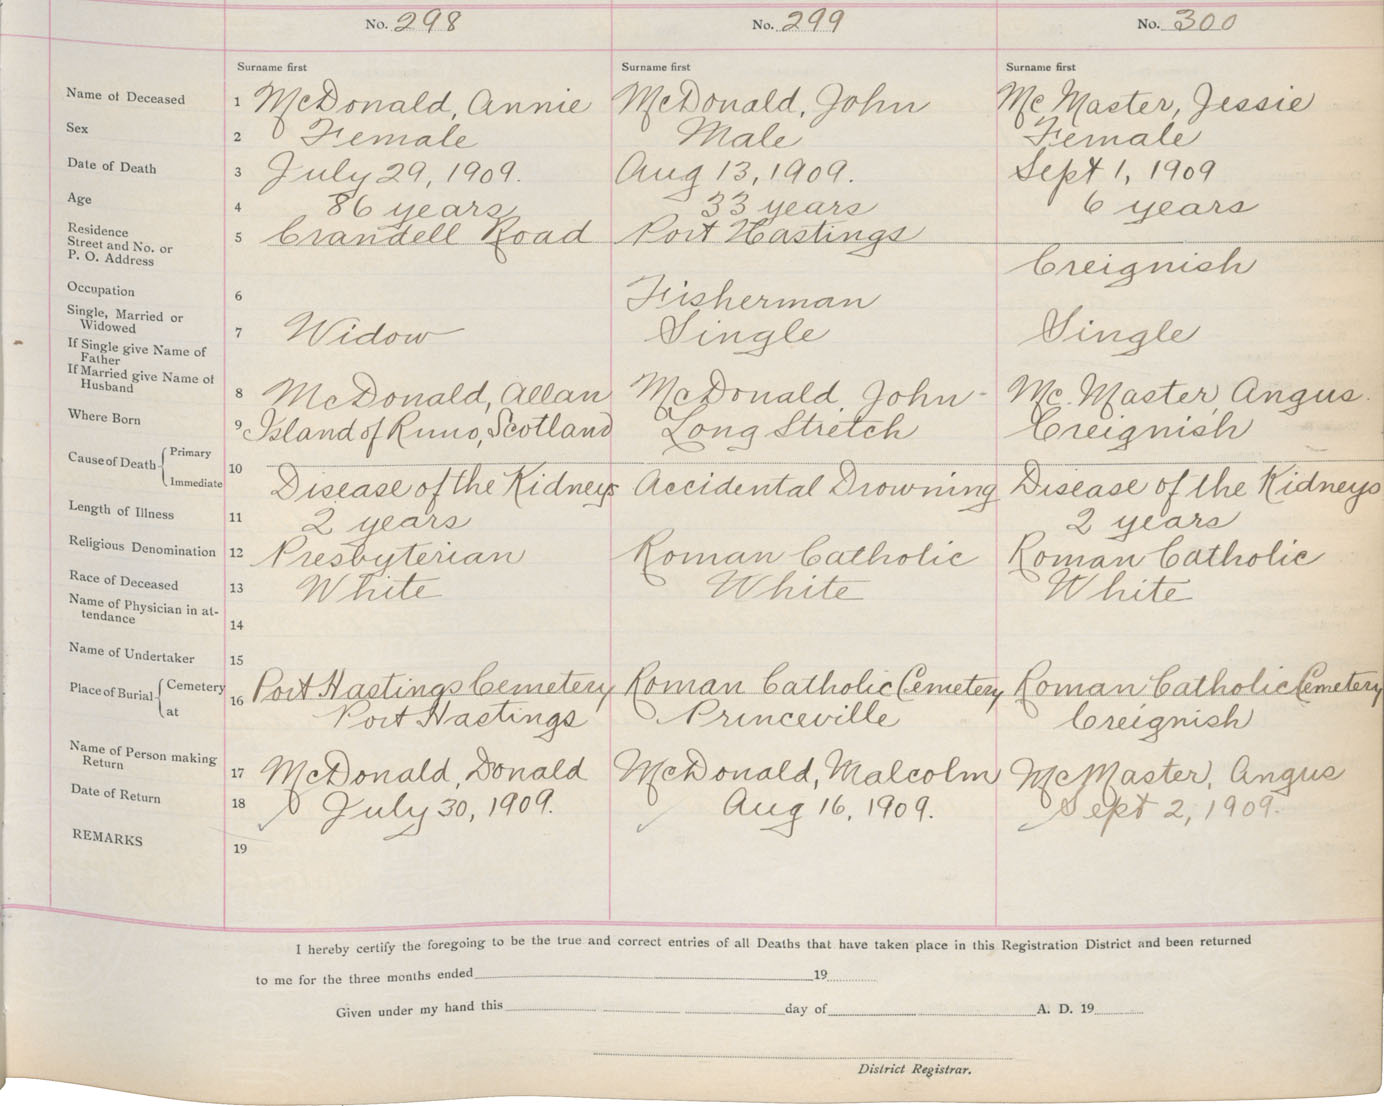 No. 298 No. 299 No. 300
Surname first Surname first Surname first
Name of Deceased 1 McDonald, Annie McDonald, John Mc Master, Jessie
Sex 2 Female Male Female
Date of Death 3 July 29, 1909. Aug 13, 1909. Sept 1, 1909
Age 4 86 years 33 years 6 years
Residence
Street and No. or
P. O. Address 5 Crandell Road Port Hastings Creignish
Occupation 6 Fisherman
Single, Married or
Widowed 7 Widow Single Single
If Single give Name of
Father
If Married give Name of
Husband 8 McDonald, Allan McDonald John - Mc. Master, Angus.
Where Born 9 Island of Runo, Scotland Long Stretch Creignish
Cause of Death { Primary
Immediate 10 Disease of the Kidneys Accidental Drowning Disease of the Kidneys
Length of Illness 11 2 years 2 years
Religious Denomination 12 Presbyterian Roman Catholic Roman Catholic
Race of Deceased 13 White White White
Name of Physician in at-
tendance 14
Name of Undertaker 15
Place of Burial { Cemetery 16 Port Hastings Cemetery Roman Catholic Cemetery Roman Catholic Cemetery
at Port Hastings Princeville Creignish
Name of Person making
Return 17 McDonald, Donald McDonald, Malcolm McMaster, Angus
Date of Return 18 July 30, 1909. Aug 16, 1909. Sept 2, 1909.
REMARKS 19
I hereby certify the foregoing to be the true and correct entries of all Deaths that have taken place in this Registration District and been returned
to me for the three months ended 19
Given under my hand this day of A. D. 19
District Registrar.